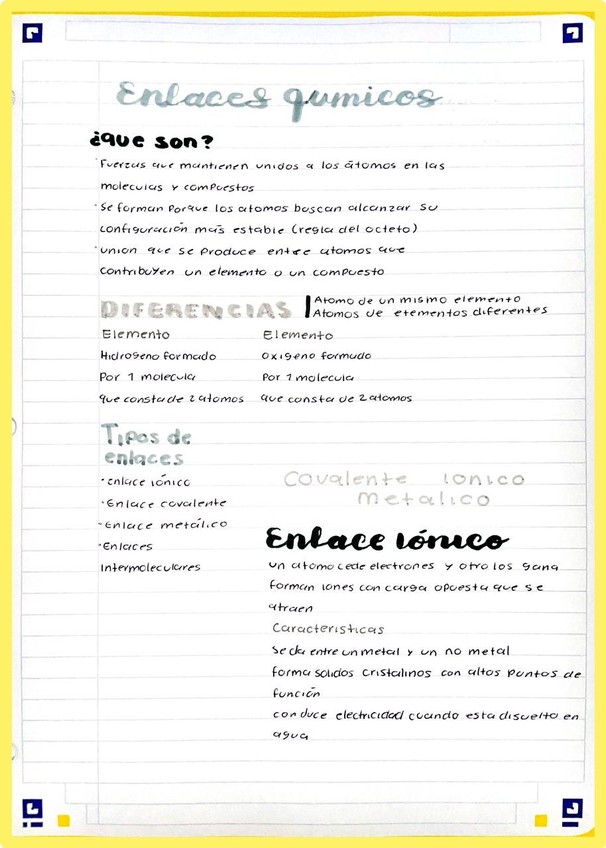 Enlaces qumicos
¿que son?
·Fuerzas que mantienen unidos a los átomos en las
moleculas y compuestos
·Se forman porque los atomos buscan alcanzar su
configuración más estable (regla del octeto)
·union que se produce entre atomos que
contribuyen un elemento o un compuesto
DIFERENCIAS
Atomo de un mismo elemento
Atomos de etementos diferentes
Elemento
Hidrogeno formado
Por 1 molecula
que consta de 2 atomos
Elemento
oxigeno formado
Por 1 molecula
que consta de 2 atomos
Tipos de
enlaces
·enlace iónico
·Enlace covalente
·Enlace metálico
·Enlaces
Intermoleculares
Covalente ionico
metalico
Enlace iónico
un atomo cede electrones y otro los gana
forman iones con carga opuesta que se
atraen
Caracteristicas
Se da entre un metal y un no metal
forma solidos cristalinos con altos puntos de
función
conduce electricidad cuando esta disuelto en
agua